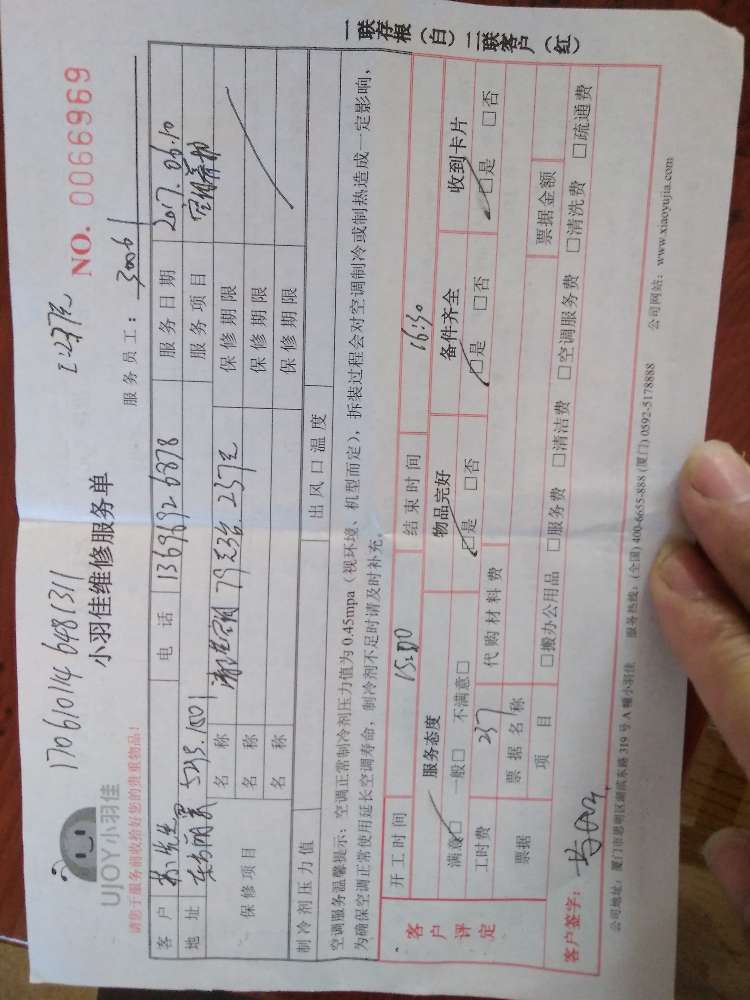 1706101146481311
UJOY小羽佳
小羽佳维修服务单
1:237元
NO. 0066969
请您于服务前收拾好您的贵重物品!
服务员工: 30061
客户 林先生 电话 13696926878 服务日期 2017.06.10
地址 5#3.1001 服务项目 空调养护
保修项目 名称 清洗空调 79元3台.237元 保修期限
名称 保修期限
名称 保修期限
制冷剂压力值 出风口温度
空调服务温馨提示:空调正常制冷剂压力值为0.45mpa(视环境、机型而定),拆装过程会对空调制冷或制热造成一定影响,
为确保空调正常使用延长空调寿命,制冷剂不足时请及时补充。
客户评定
开工时间 15:00 结束时间 16:30
服务态度 物品完好 备件齐全 收到卡片
满意□ 一般□ 不满意□ □是 □否 □是 □否 □是 □否
工时费 237 代购材料费
票据 票据名称 票据金额
项目 □搬办公用品 □服务费 □清洁费 □空调服务费 □清洗费 □疏通费
客户签字:
公司地址:厦门市思明区湖滨东路319号A幢小羽佳 服务热线:(全国)400-6655-888 (厦门)0592-5178888 公司网站:www.xiaoyujia.com
一联存根(白) 二联客户(红)